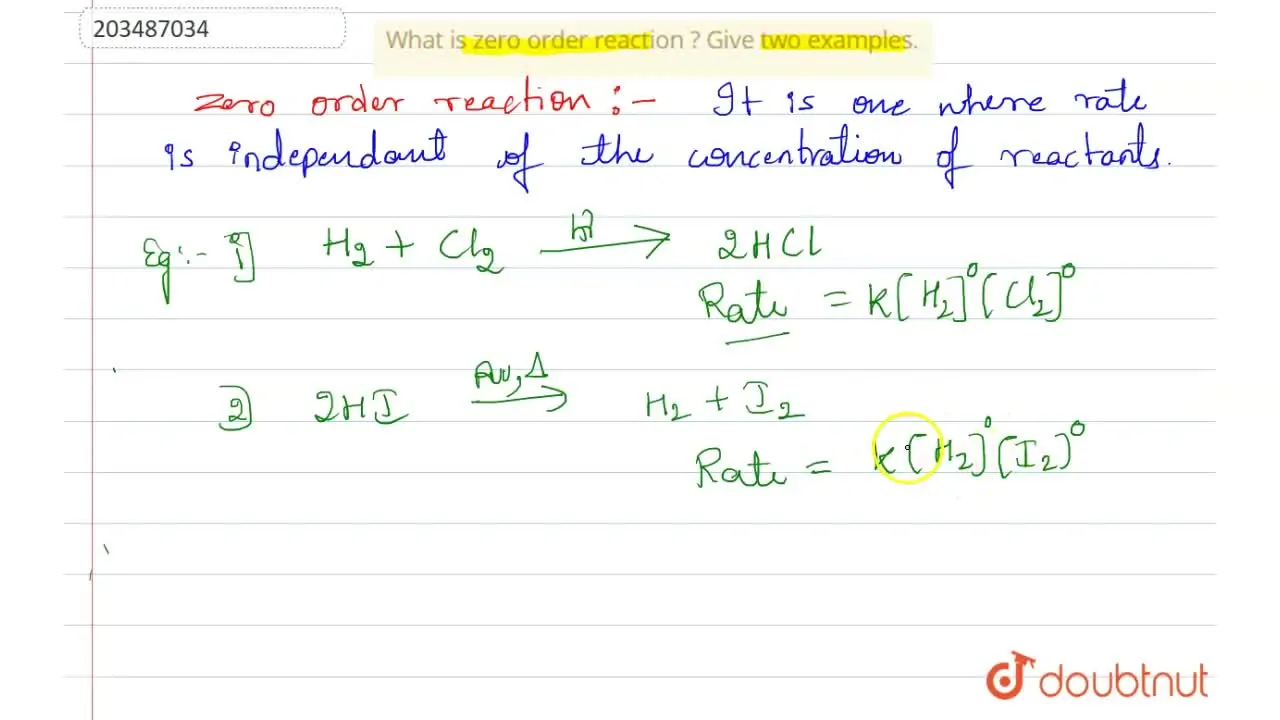 203487034
What is zero order reaction ? Give two examples.
Zero order reaction :- It is one where rate
is independant of the concentration of reactants.
Eg:- 1] H2 + Cl2 hν→ 2HCl
Rate = K[H2]⁰[Cl2]⁰
2] 2HI Au, Δ→ H2 + I2
Rate = K[H2]⁰[I2]⁰
doubtnut